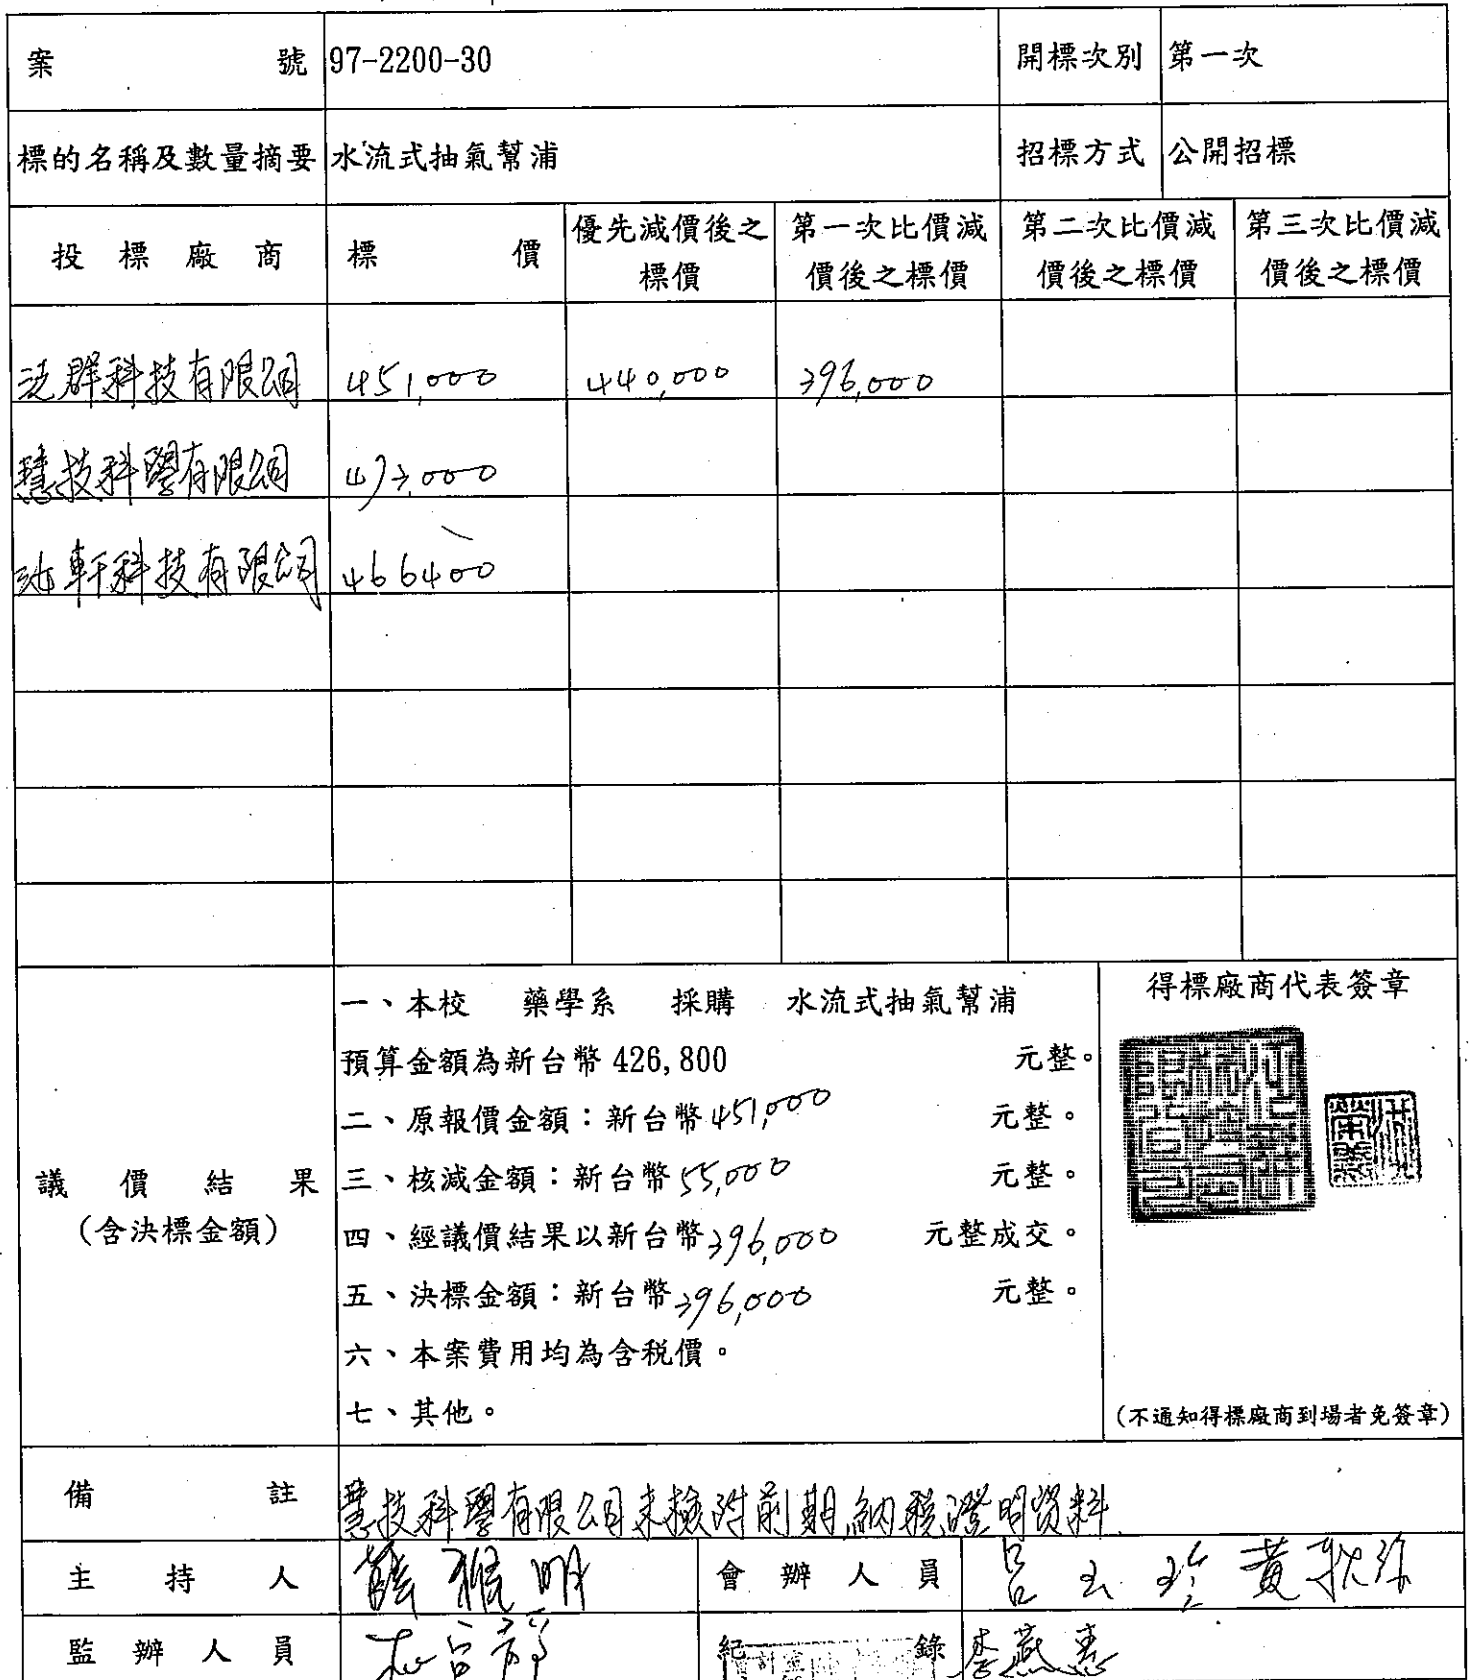 案 號 97-2200-30 開標次別 第一次
標的名稱及數量摘要 水流式抽氣幫浦 招標方式 公開招標
投標廠商 標價 優先減價後之標價 第一次比價減價後之標價 第二次比價減價後之標價 第三次比價減價後之標價
群科技有限公司 451,000 440,000 396,000
慧技科學有限公司 473,000
軒科技有限公司 466400
議價結果
(含決標金額)
一、本校 藥學系 採購 水流式抽氣幫浦
預算金額為新台幣 426,800 元整。
二、原報價金額：新台幣 451,000 元整。
三、核減金額：新台幣 55,000 元整。
四、經議價結果以新台幣 396,000 元整成交。
五、決標金額：新台幣 396,000 元整。
六、本案費用均為含稅價。
七、其他。
得標廠商代表簽章
(不通知得標廠商到場者免簽章)
備註 慧技科學有限公司未檢附前期納稅證明資料
主持人 明 會辦人員 呂玉珍 黃
監辦人員 紀錄 李燕惠